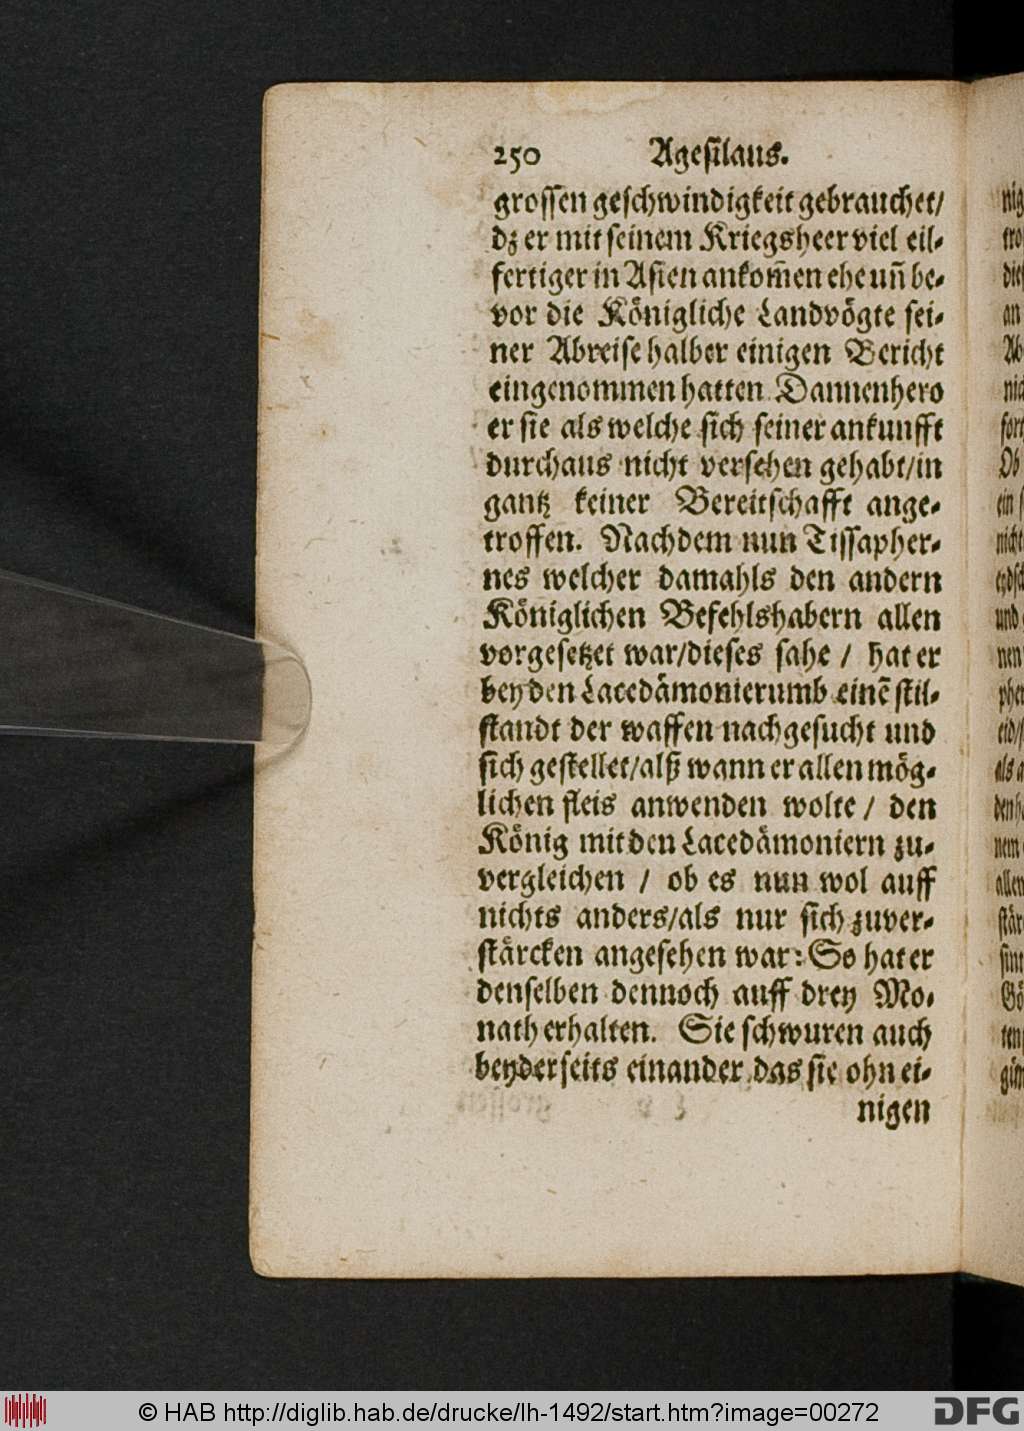 250 Agesilaus.
grossen geschwindigkeit gebrauchet/
dz er mit seinem Kriegsheer viel eil-
fertiger in Asien ankom̃en ehe uñ be-
vor die Königliche Landvögte sei-
ner Abreise halber einigen Bericht
eingenommen hatten Dannenhero
er sie als welche sich seiner ankunfft
durchaus nicht versehen gehabt/in
gantz keiner Bereitschafft ange-
troffen. Nachdem nun Tissapher-
nes welcher damahls den andern
Königlichen Befehlshabern allen
vorgesetzet war/dieses sahe / hat er
bey den Lacedämonier umb einẽ stil-
standt der waffen nachgesucht und
sich gestellet/alß wann er allen mög-
lichen fleis anwenden wolte / den
König mit den Lacedämoniern zu-
vergleichen / ob es nun wol auff
nichts anders/als nur sich zuver-
stärcken angesehen war: So hat er
denselben dennoch auff drey Mo-
nath erhalten. Sie schwuren auch
beyderseits einander das sie ohn ei-
nigen
nig
tro
die
an
Ab
nic
fort
Ob
ein
nicht
und
nen
pher
eid/
als a
nem
allen
stär
Gö
© HAB http://diglib.hab.de/drucke/lh-1492/start.htm?image=00272
DFG